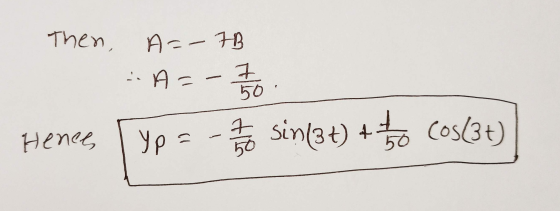 Then, A = - 7B
∴ A = - 7/50.
Hence, yp = - 7/50 sin(3t) + 1/50 cos(3t)